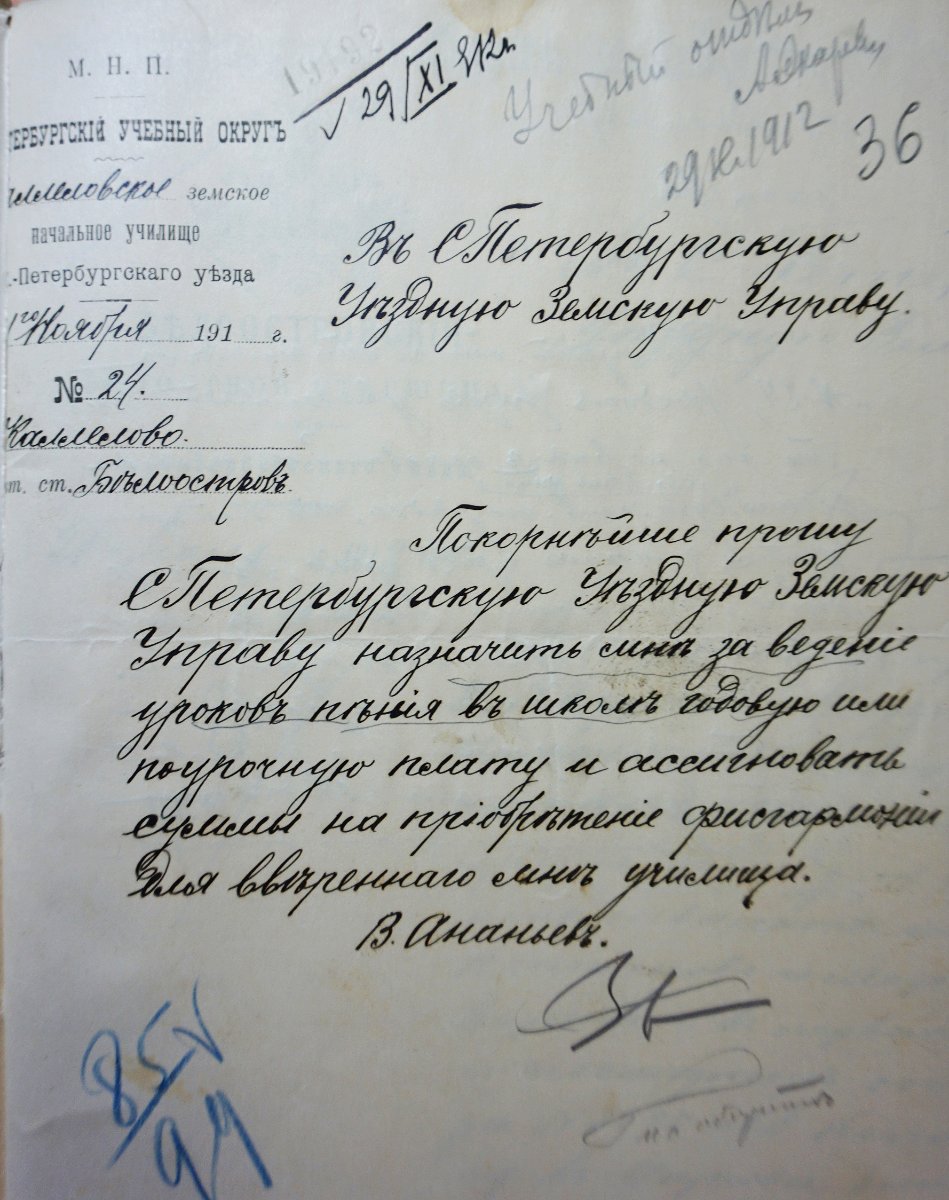 М. Н. П.
ТЕРБУРГСКІЙ УЧЕБНЫЙ ОКРУГЪ
ллеловское земское
начальное училище
.-Петербургскаго уѣзда
1го Ноября 191 г.
№ 24.
Каллелово.
ст. Бѣлоостровъ.
29/XI 912 г.
Учебный отдѣлъ
29 XI 1912
36
Въ СПетербургскую
Уѣздную Земскую Управу.
Покорнѣйше прошу
СПетербургскую Уѣздную Земскую
Управу назначить мнѣ за веденіе
уроковъ пѣнія въ школѣ годовую или
поурочную плату и ассигновать
суммы на пріобрѣтеніе фисгармоніи
для ввѣреннаго мнѣ училища.
В. Ананьевъ.
85
99